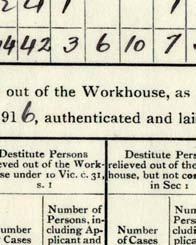 4442 3 6 10 7
out of the Workhouse, as
916, authenticated and lai
Destitute Persons
eved out of the Work-
se under 10 Vic. c. 31,
s. 1
Destitute Pers
relieved out of the
house, but not co
in Sec 1
umber
Cases
Number of
Persons, in-
cluding Ap-
plicant and
Number
of Cases
Nu
Per
cludi
plic